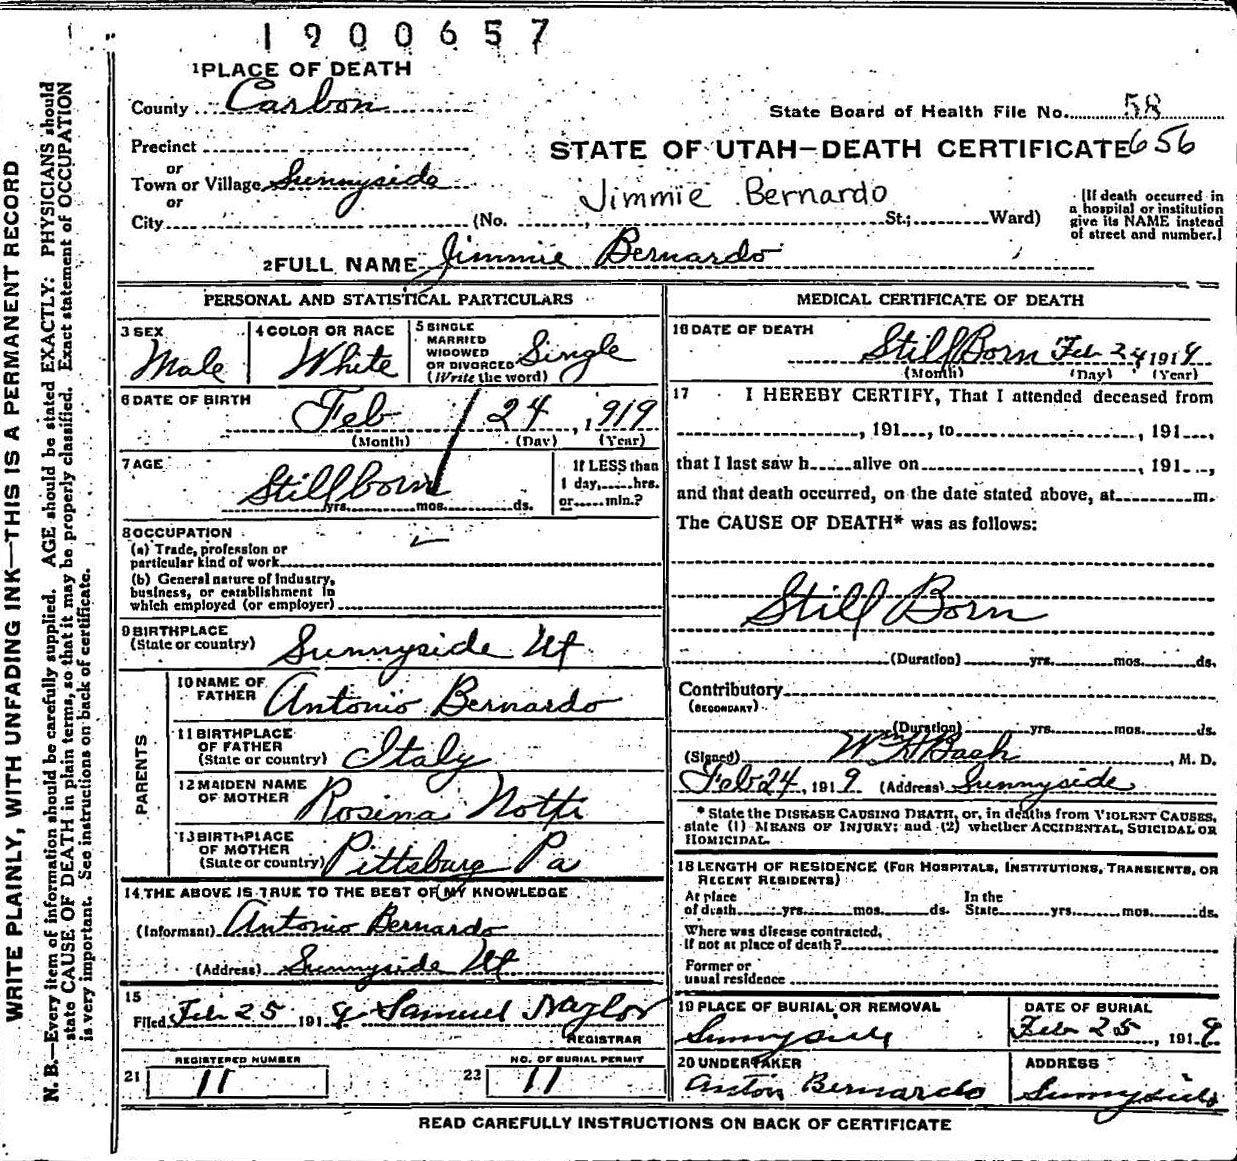 1900657
1 PLACE OF DEATH
County Carbon
State Board of Health File No. 58
Precinct
STATE OF UTAH—DEATH CERTIFICATE 656
or
Town or Village Sunnyside
Jimmie Bernardo
or
City (No. St.; Ward)
[If death occurred in
a hospital or institution
give its NAME instead
of street and number.]
2 FULL NAME Jimmie Bernardo
PERSONAL AND STATISTICAL PARTICULARS
3 SEX
Male
4 COLOR OR RACE
White
5 SINGLE
MARRIED
WIDOWED
OR DIVORCED
(Write the word)
Single
6 DATE OF BIRTH
Feb 24, 1919
(Month) (Day) (Year)
7 AGE
Stillborn
yrs. mos. ds.
If LESS than
1 day, hrs.
or min.?
8 OCCUPATION
(a) Trade, profession or
particular kind of work
(b) General nature of Industry,
business, or establishment in
which employed (or employer)
9 BIRTHPLACE
(State or country) Sunnyside Ut
PARENTS
10 NAME OF
FATHER Antonio Bernardo
11 BIRTHPLACE
OF FATHER
(State or country) Italy
12 MAIDEN NAME
OF MOTHER Rosina Notti
13 BIRTHPLACE
OF MOTHER
(State or country) Pittsburg Pa
14 THE ABOVE IS TRUE TO THE BEST OF MY KNOWLEDGE
(Informant) Antonio Bernardo
(Address) Sunnyside Ut
15
Filed Feb 25 1919 Samuel Naylor
REGISTRAR
REGISTERED NUMBER
21 11
NO. OF BURIAL PERMIT
22 11
MEDICAL CERTIFICATE OF DEATH
16 DATE OF DEATH
Still Born Feb 24 1919
(Month) (Day) (Year)
17 I HEREBY CERTIFY, That I attended deceased from
, 191 , to , 191 ,
that I last saw h alive on , 191 ,
and that death occurred, on the date stated above, at m.
The CAUSE OF DEATH* was as follows:
Still Born
(Duration) yrs. mos. ds.
Contributory
(SECONDARY)
(Duration) yrs. mos. ds.
(Signed) Wm H Bach, M. D.
Feb 24, 1919 (Address) Sunnyside
* State the DISEASE CAUSING DEATH, or, in deaths from VIOLENT CAUSES,
state (1) MEANS OF INJURY; and (2) whether ACCIDENTAL, SUICIDAL OR
HOMICIDAL.
18 LENGTH OF RESIDENCE (FOR HOSPITALS, INSTITUTIONS, TRANSIENTS, OR
RECENT RESIDENTS)
At place
of death yrs. mos. ds.
In the
State yrs. mos. ds.
Where was disease contracted,
if not at place of death?
Former or
usual residence
19 PLACE OF BURIAL OR REMOVAL
Sunnyside
DATE OF BURIAL
Feb 25, 1919
20 UNDERTAKER
Anton Bernardo
ADDRESS
Sunnyside
READ CAREFULLY INSTRUCTIONS ON BACK OF CERTIFICATE
WRITE PLAINLY, WITH UNFADING INK—THIS IS A PERMANENT RECORD
N. B.—Every item of information should be carefully supplied. AGE should be stated EXACTLY. PHYSICIANS should
state CAUSE OF DEATH in plain terms, so that it may be properly classified. Exact statement of OCCUPATION
is very important. See instructions on back of certificate.